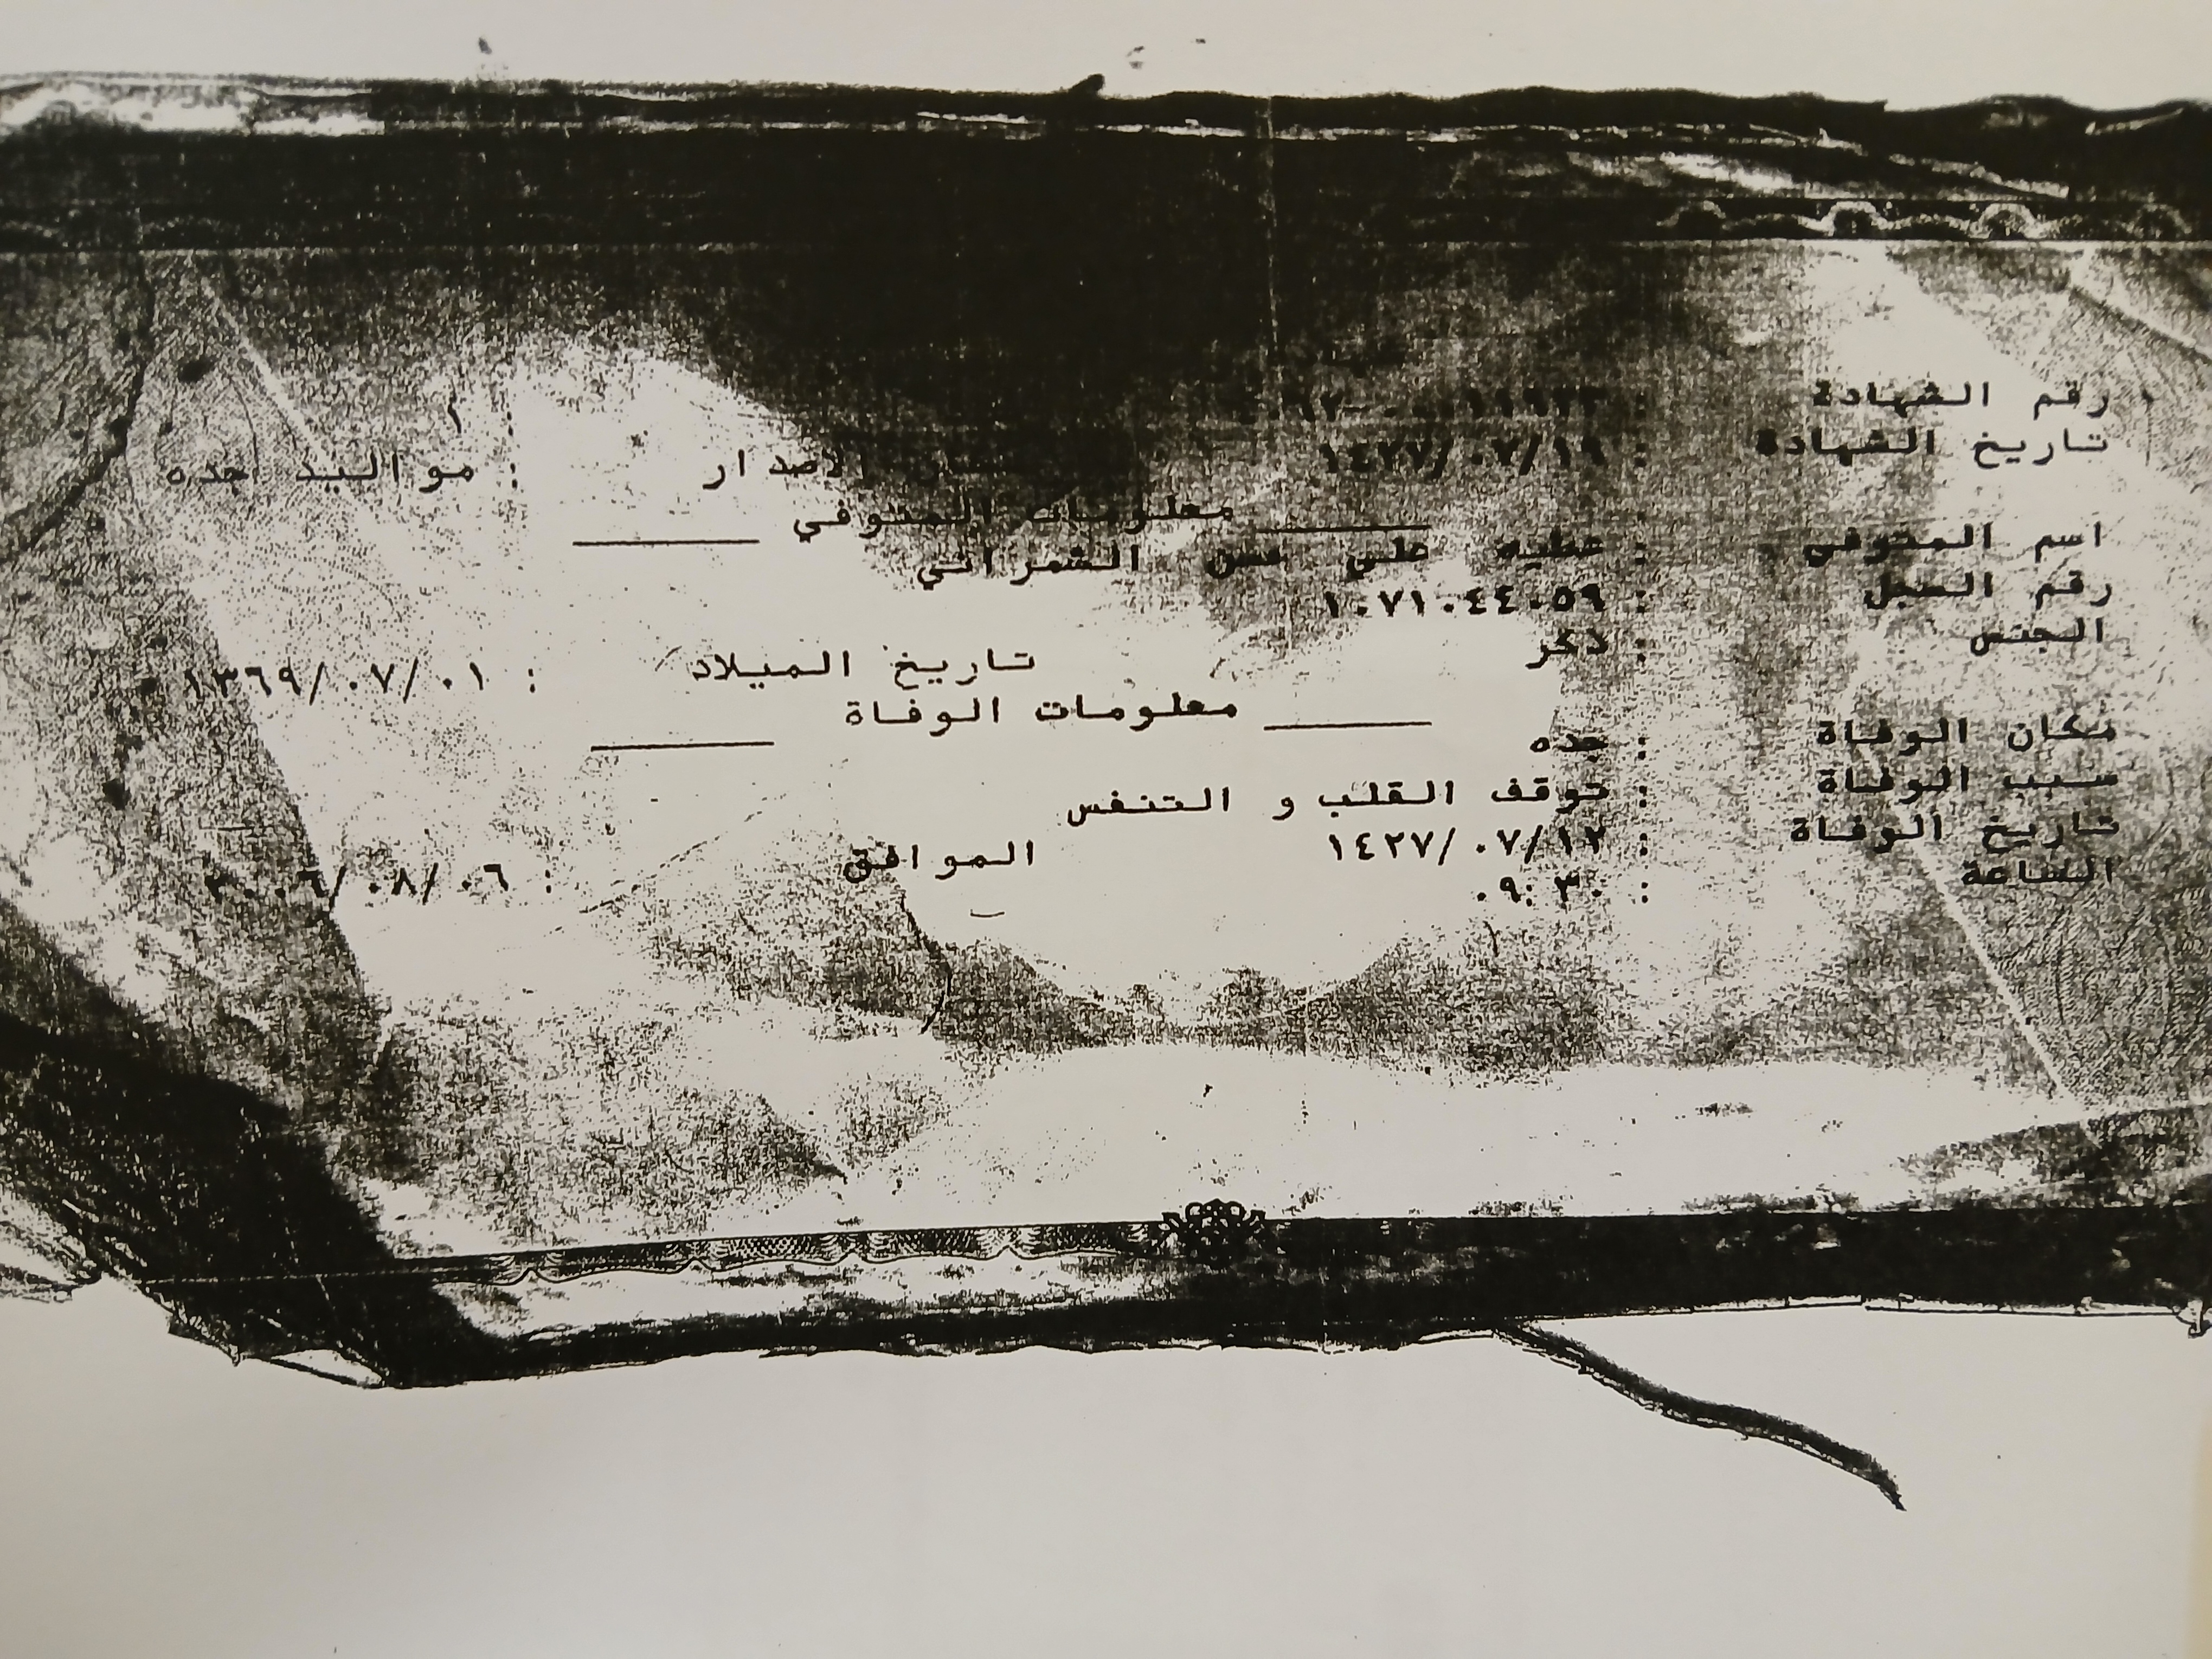 رقم الشهادة :
تاريخ الشهادة : ١٤٢٧/٠٧/١٩ الاصدار : مواليد جده
معلومات المتوفي
اسم المتوفي : عطيه علي حسن الشمراني
رقم السجل : ١٠٧١٠٤٤٠٥٩
الجنس : ذكر تاريخ الميلاد : ١٣٦٩/٠٧/٠١
معلومات الوفاة
مكان الوفاة : جده
سبب الوفاة : توقف القلب و التنفس
تاريخ الوفاة : ١٤٢٧/٠٧/١٢ الموافق : ٢٠٠٦/٠٨/٠٦
الساعة : ٠٩:٣٠